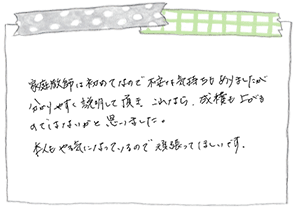 家庭教師は初めてなので不安な気持ちもありましたが
分かりやすく説明して頂き これなら、成績も上がる
のではないかと思いました。
本人もやる気になっているので頑張ってほしいです。